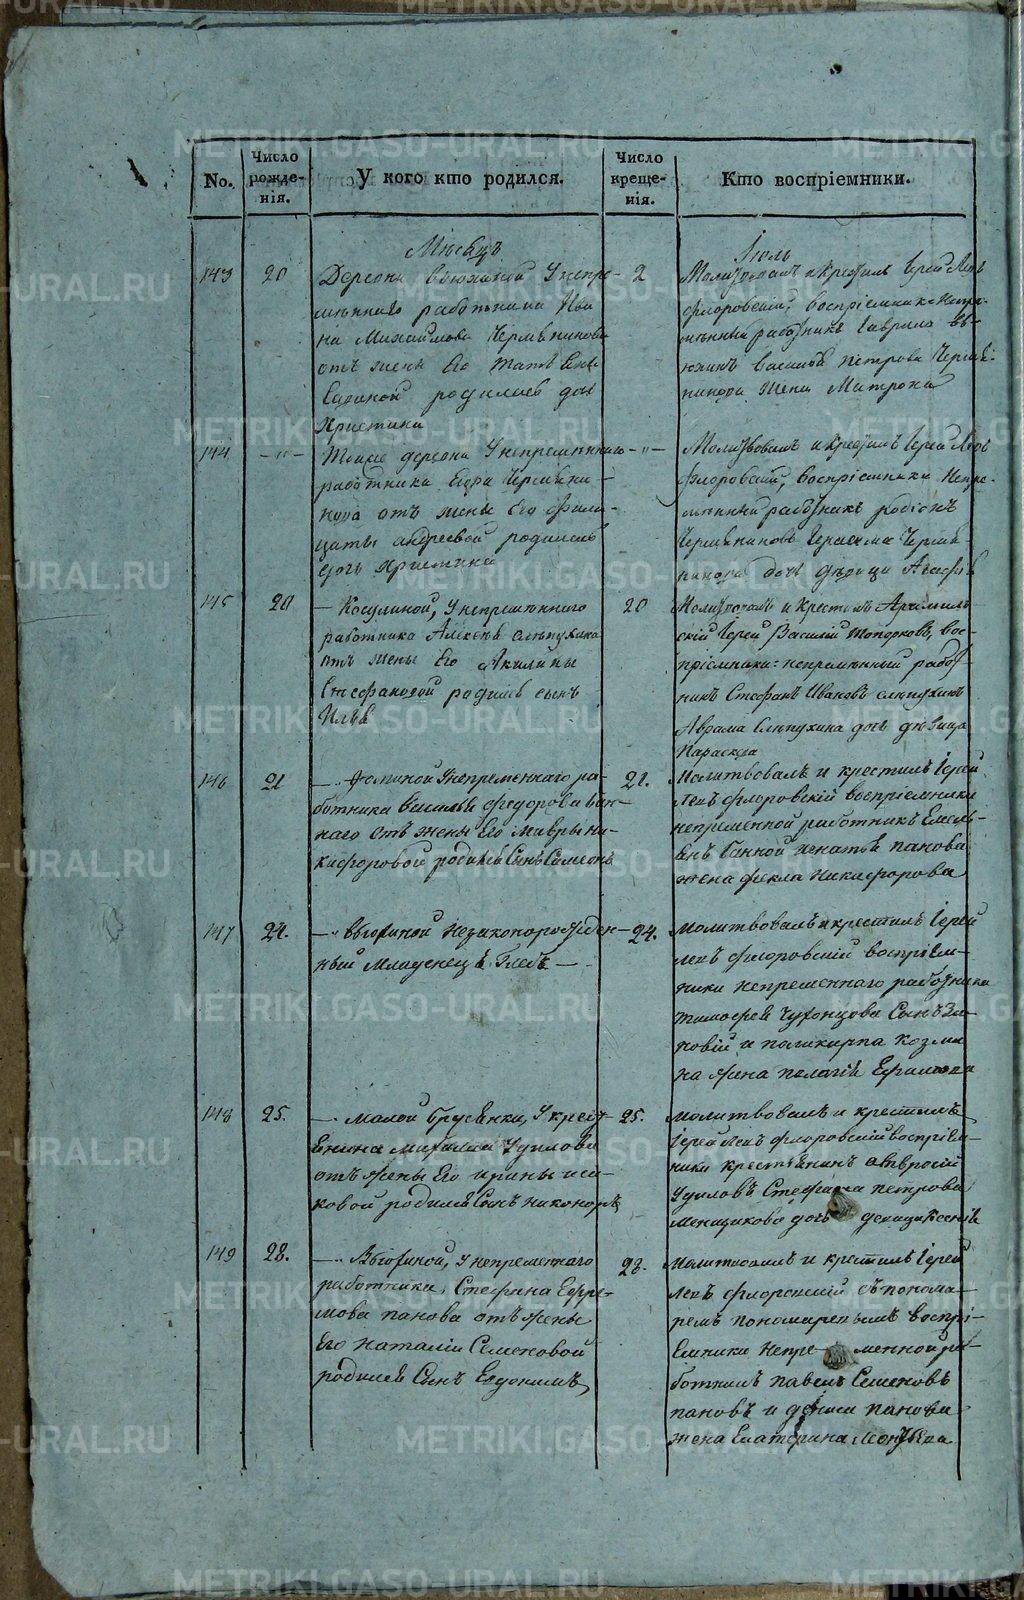 No.
Число рожде-
нія.
У кого кто родился.
Число креще-
нія.
Кто воспріемники.
Мѣсяцъ
Іюль
143
20
Деревни Вьюхиной У непре-
мѣннаго работника Ива
на Михайлова Черемьнинова
отъ жены Его Татьяны
родилась дочь
Христина
2
Молитвовалъ и Крестилъ Іерей Левъ
Флоровскій; воспріемники непре-
мѣнный работникъ Гаврило Вь-
юхинъ Василья Петрова
жена Матрона
144
— " —
Тоже деревни У непремѣннаго
работника
отъ жены Его Фили-
цаты Андреевой родилась
дочь Христина
— " —
Молитвовалъ и Крестилъ Іерей Левъ
Флоровскій, воспріемники Непре-
мѣнный работникъ Родіонъ
Герасима
дочь дѣвица Агафья
145
20
— Косулиной, У непремѣннаго
работника Алексѣя Слѣпухина
отъ жены Его Акилины
Стефановой родился сынъ
Илья
20
Молитвовалъ и Крестилъ Арамиль-
скій Іерей Василій Топорковъ, вос-
пріемники: непремѣнный работ-
никъ Стефанъ Ивановъ Слѣпухинъ
Аврама Слѣпухина дочь дѣвица
Параскева
146
21
— Фоминой У непременнаго ра-
ботника Василья Федорова Бан-
наго отъ жены Его Мавры Ни-
кифоровой родился Сынъ Симеонъ
21.
Молитвовалъ и крестилъ Іерей
Левъ Флоровскій воспріемники
непременной работникъ Емель-
янъ Банной Игнатья Панова
жена Фекла Никифорова
147
24.
— " Выгориной Незаконорожден-
ный Младенецъ Глебъ —
24.
Молитвовалъ и крестилъ Іерей
Левъ Флоровскій воспріем-
ники непременнаго работника
Тимофея Чухонцова Сынъ Зи-
новій и Поликарпа Козми
на жена Пелагія Ефимова
148
25.
— Малой Брусянки, У крест
янина Михайла Удилова
отъ жены Его Ирины Иса-
ковой родился Сынъ Никоноръ
25.
Молитвовалъ и крестилъ
Іерей Левъ Флоровскій воспріем-
ники крестьянинъ Амвросій
Удиловъ Стефана Петрова
Менщикова дочь девица Ксенія
149
28.
— " Выгориной, У непременнаго
работника, Стефана Ефре-
мова Панова отъ жены
Его Наталіи Семеновой
родился Сынъ Евдокимъ
28.
Молитвовалъ и крестилъ Іерей
Левъ Флоровскій съ понома-
ремъ Пономаревымъ воспрі-
емники Непременной ра-
ботникъ Павелъ Семеновъ
Пановъ и Дениса Панова
жена Екатерина
METRIKI.GASO-URAL.RU